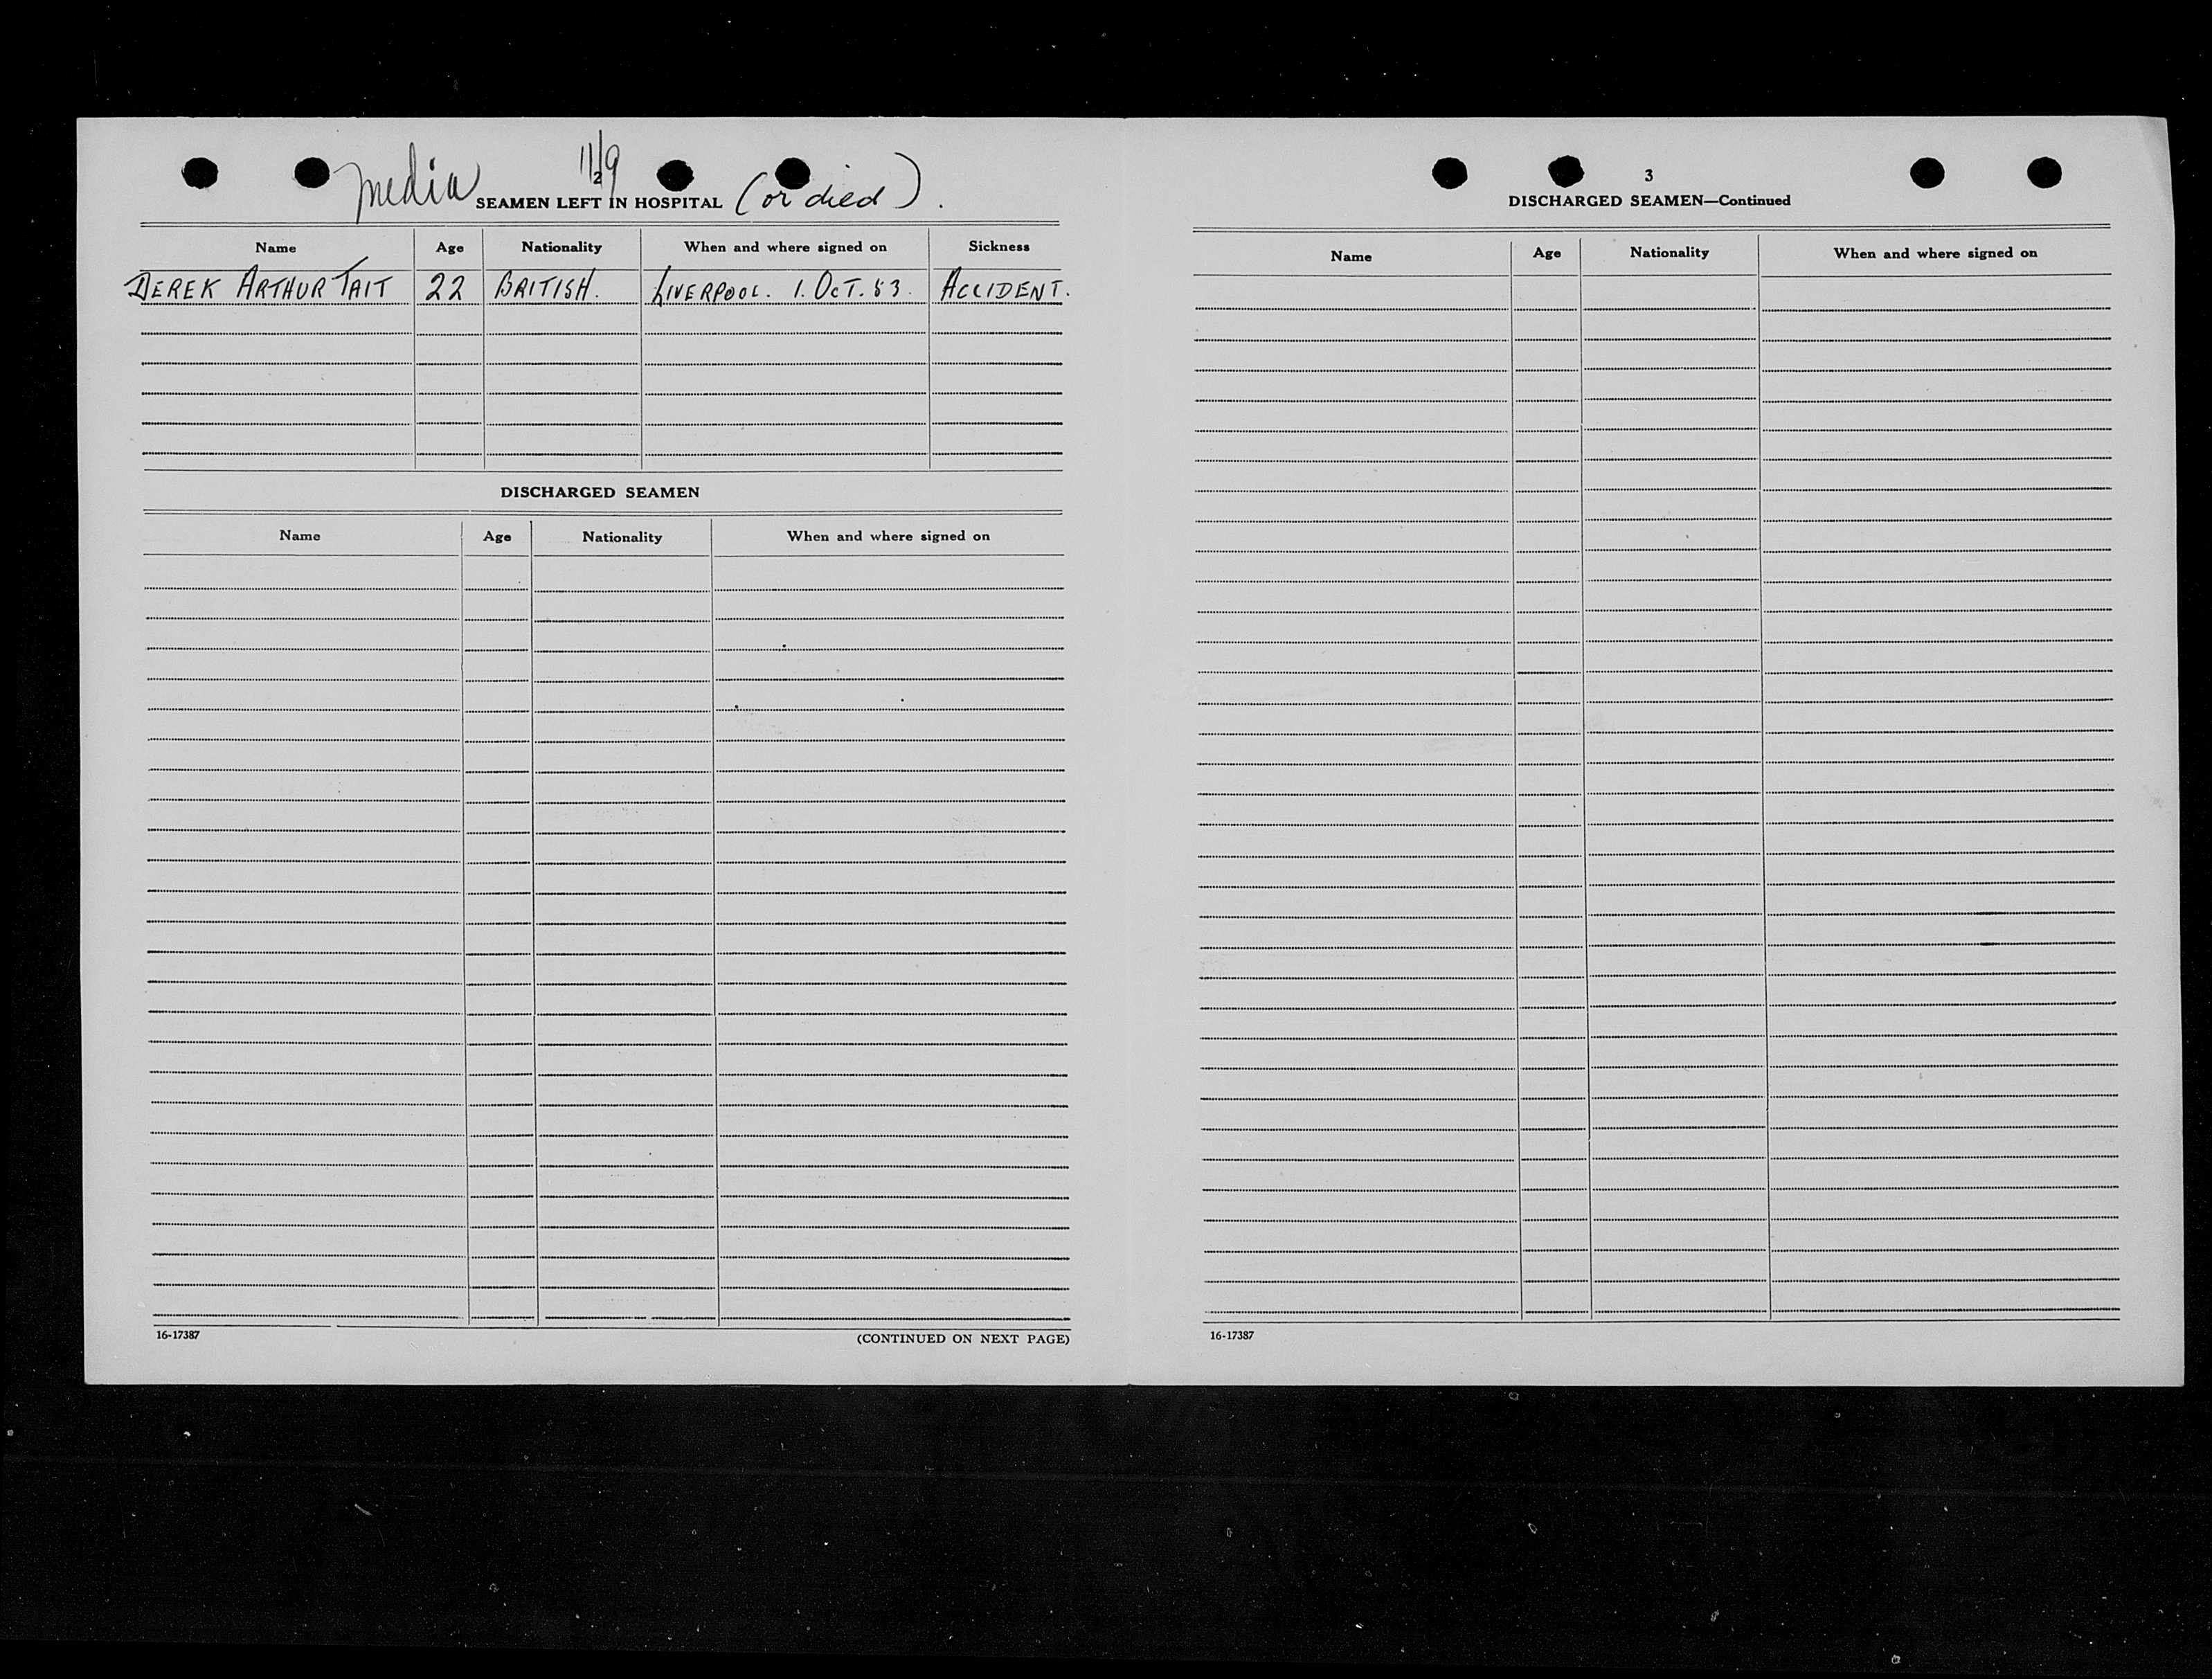 Media 11/9
2
SEAMEN LEFT IN HOSPITAL (or died).
Name Age Nationality When and where signed on Sickness
DEREK ARTHUR TAIT 22 BRITISH. LIVERPOOL. 1. OCT. 53. ACCIDENT.
DISCHARGED SEAMEN
Name Age Nationality When and where signed on
16-17387 (CONTINUED ON NEXT PAGE)
3
DISCHARGED SEAMEN—Continued
Name Age Nationality When and where signed on
16-17387